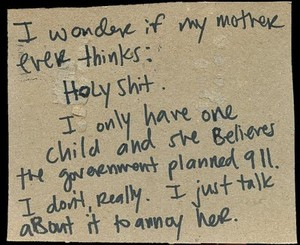 I wonder if my mother
ever thinks:
Holy shit.
I only have one
child and she Believes
the government planned 911.
I don't, Really. I just talk
aBout it to annoy her.